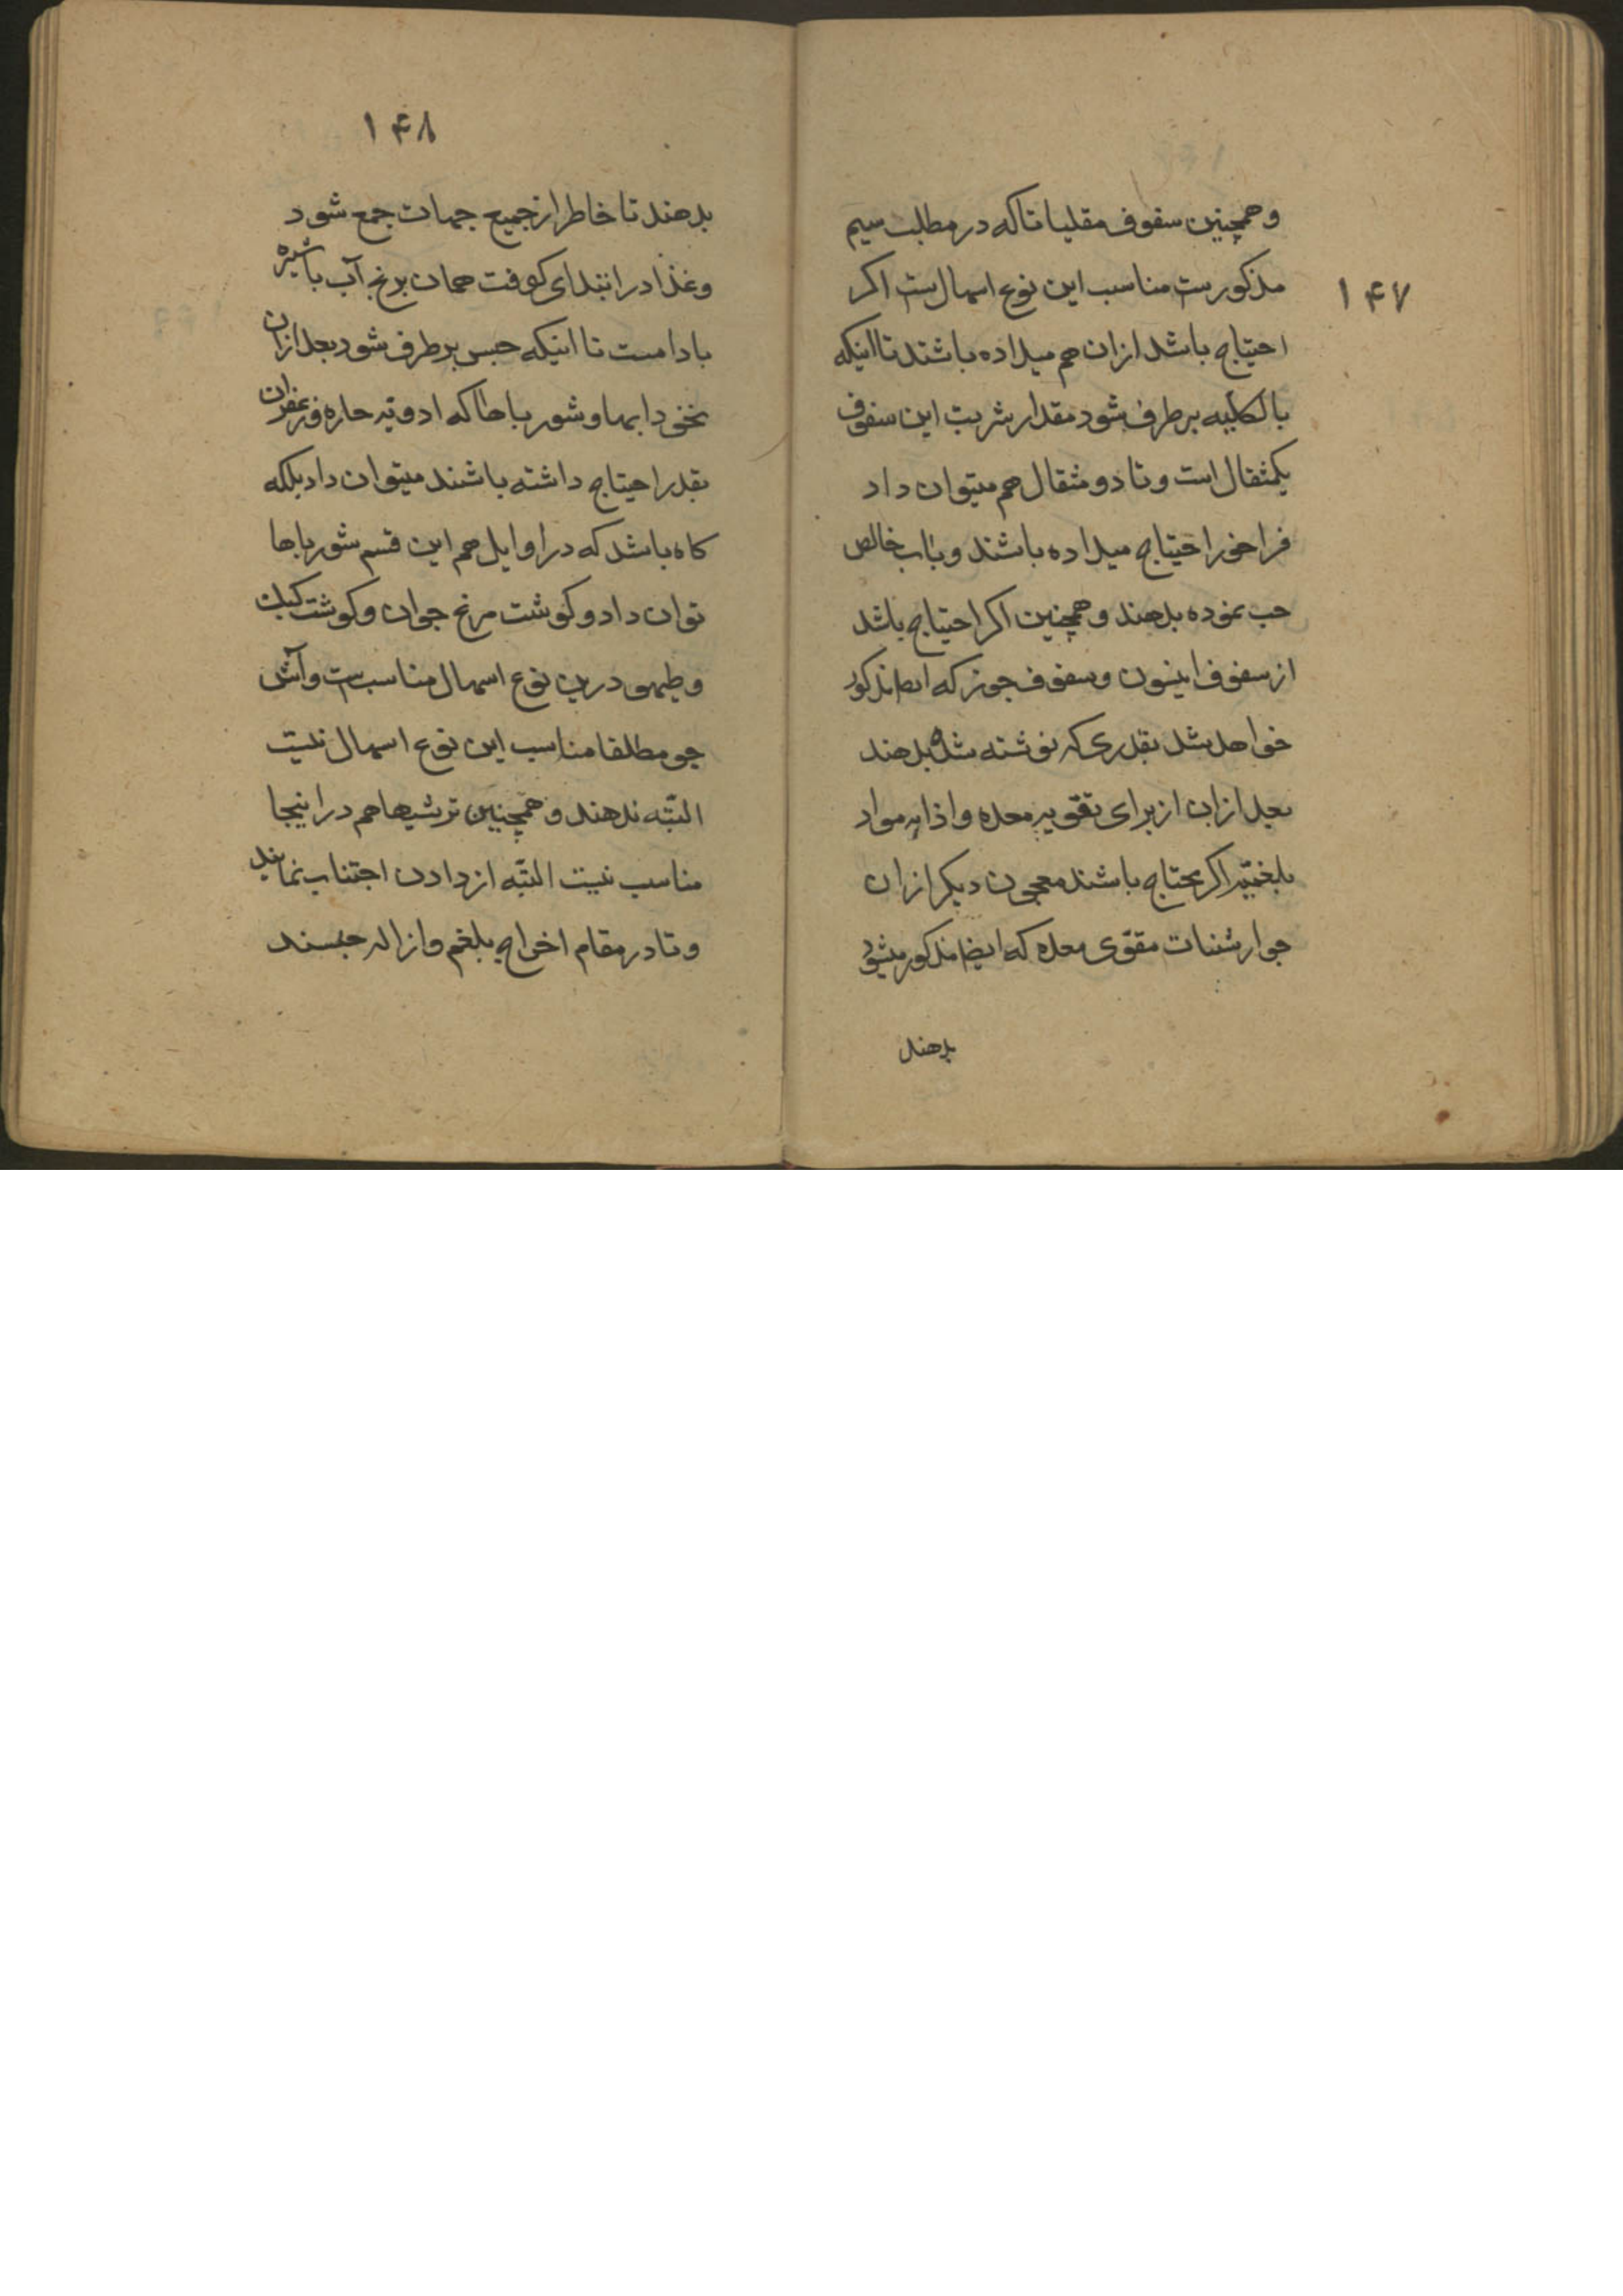 ۱۴۷
وهمچنین سفوف مقلیاثا که در مطلب سیم
مذکورست مناسب این نوع اسهال است اکر
احتیاج باشد ازان هم میداده باشند تا اینکه
بالکلیه برطرف شود مقدار شربت این سفوف
یکمثقال است و تا دو مثقال هم میتوان داد
فراخور احتیاج میداده باشند و باب خالص
حب نموده بدهند و همچنین اکر احتیاج باشد
از سفوف انیسون و سفوف جوز که ایضا مذکور
خواهد شد بقدری که نوشته شده بدهند
بعد ازان از برای تقویه معده و اذابه مواد
بلغمیّه اکر محتاج باشند معجون دیکر ازان
جوارشنات مقوّی معده که ایضا مذکور میشود
بدهند
۱۴۸
بدهند تا خاطر از جمیع جهات جمع شود
وغذا در ابتدای کوفت همان برنج آب با شیره
بادامست تا اینکه حبس برطرف شود بعد ازان
نخودابها و شورباها که ادویه حاره و زعفران
بقدر احتیاج داشته باشند میتوان داد بلکه
کاه باشد که در اوایل هم این قسم شورباها
توان داد و کوشت مرغ جوان و کوشت کبک
و طیهو درین نوع اسهال مناسب ست و آش
جو مطلقا مناسب این نوع اسهال نیست
البتّه ندهند و همچنین ترشیها هم در اینجا
مناسب نیست البتّه از دادن اجتناب نمایند
و تا در مقام اخراج بلغم و ازاله حبسند